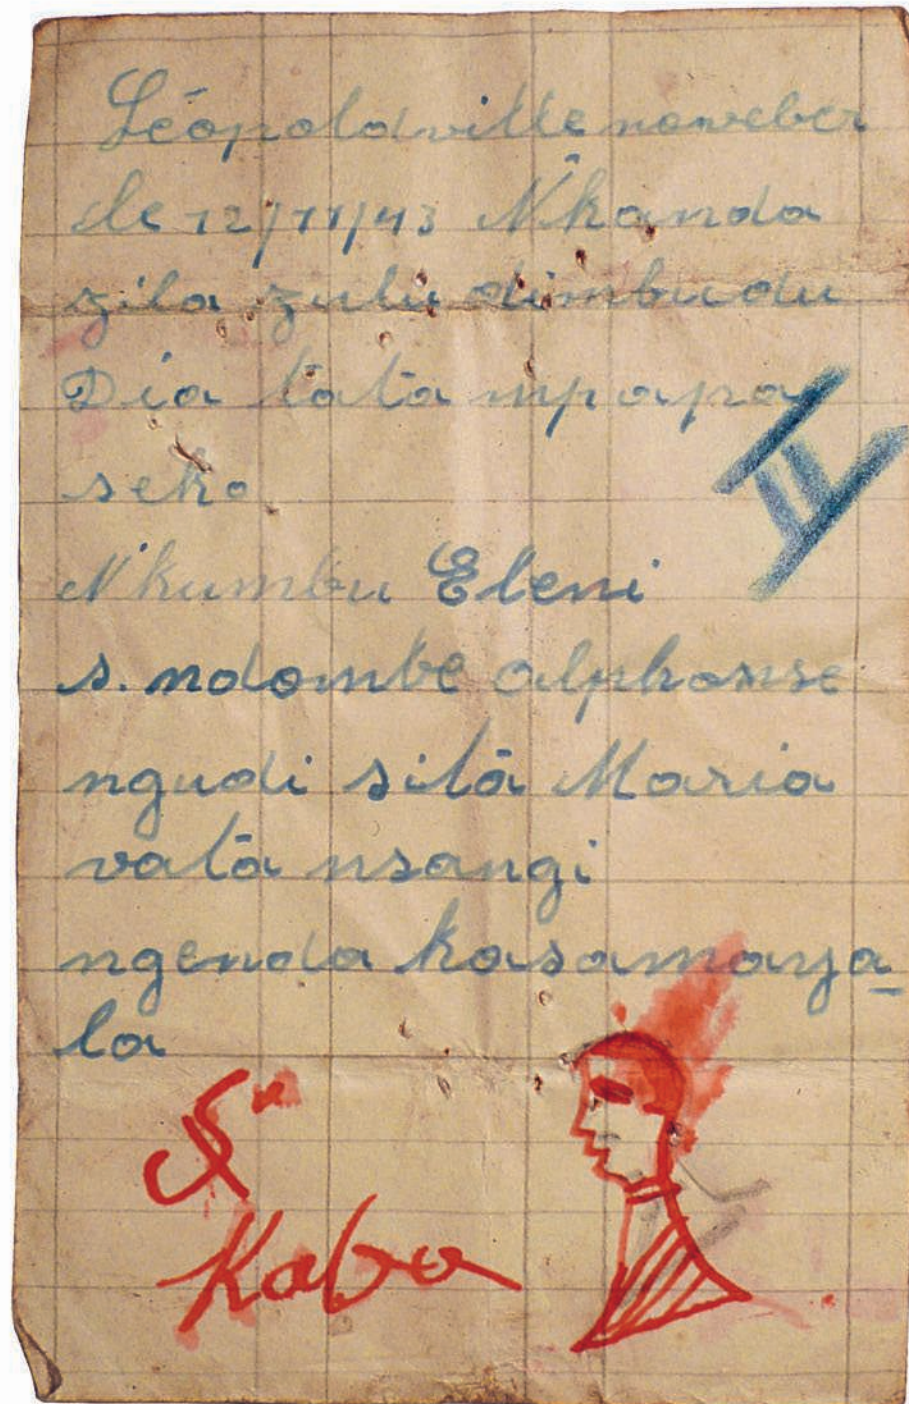 Léopoldville noweber
le 12/11/43 N'kanda
zila zulu dimbudu
Dia tata mpapa
seko
II
N'kumbu Eleni
s. ndombe alphonse
ngudi sita Maria
vata nsangi
ngenda kasamaya-
la
Kabo